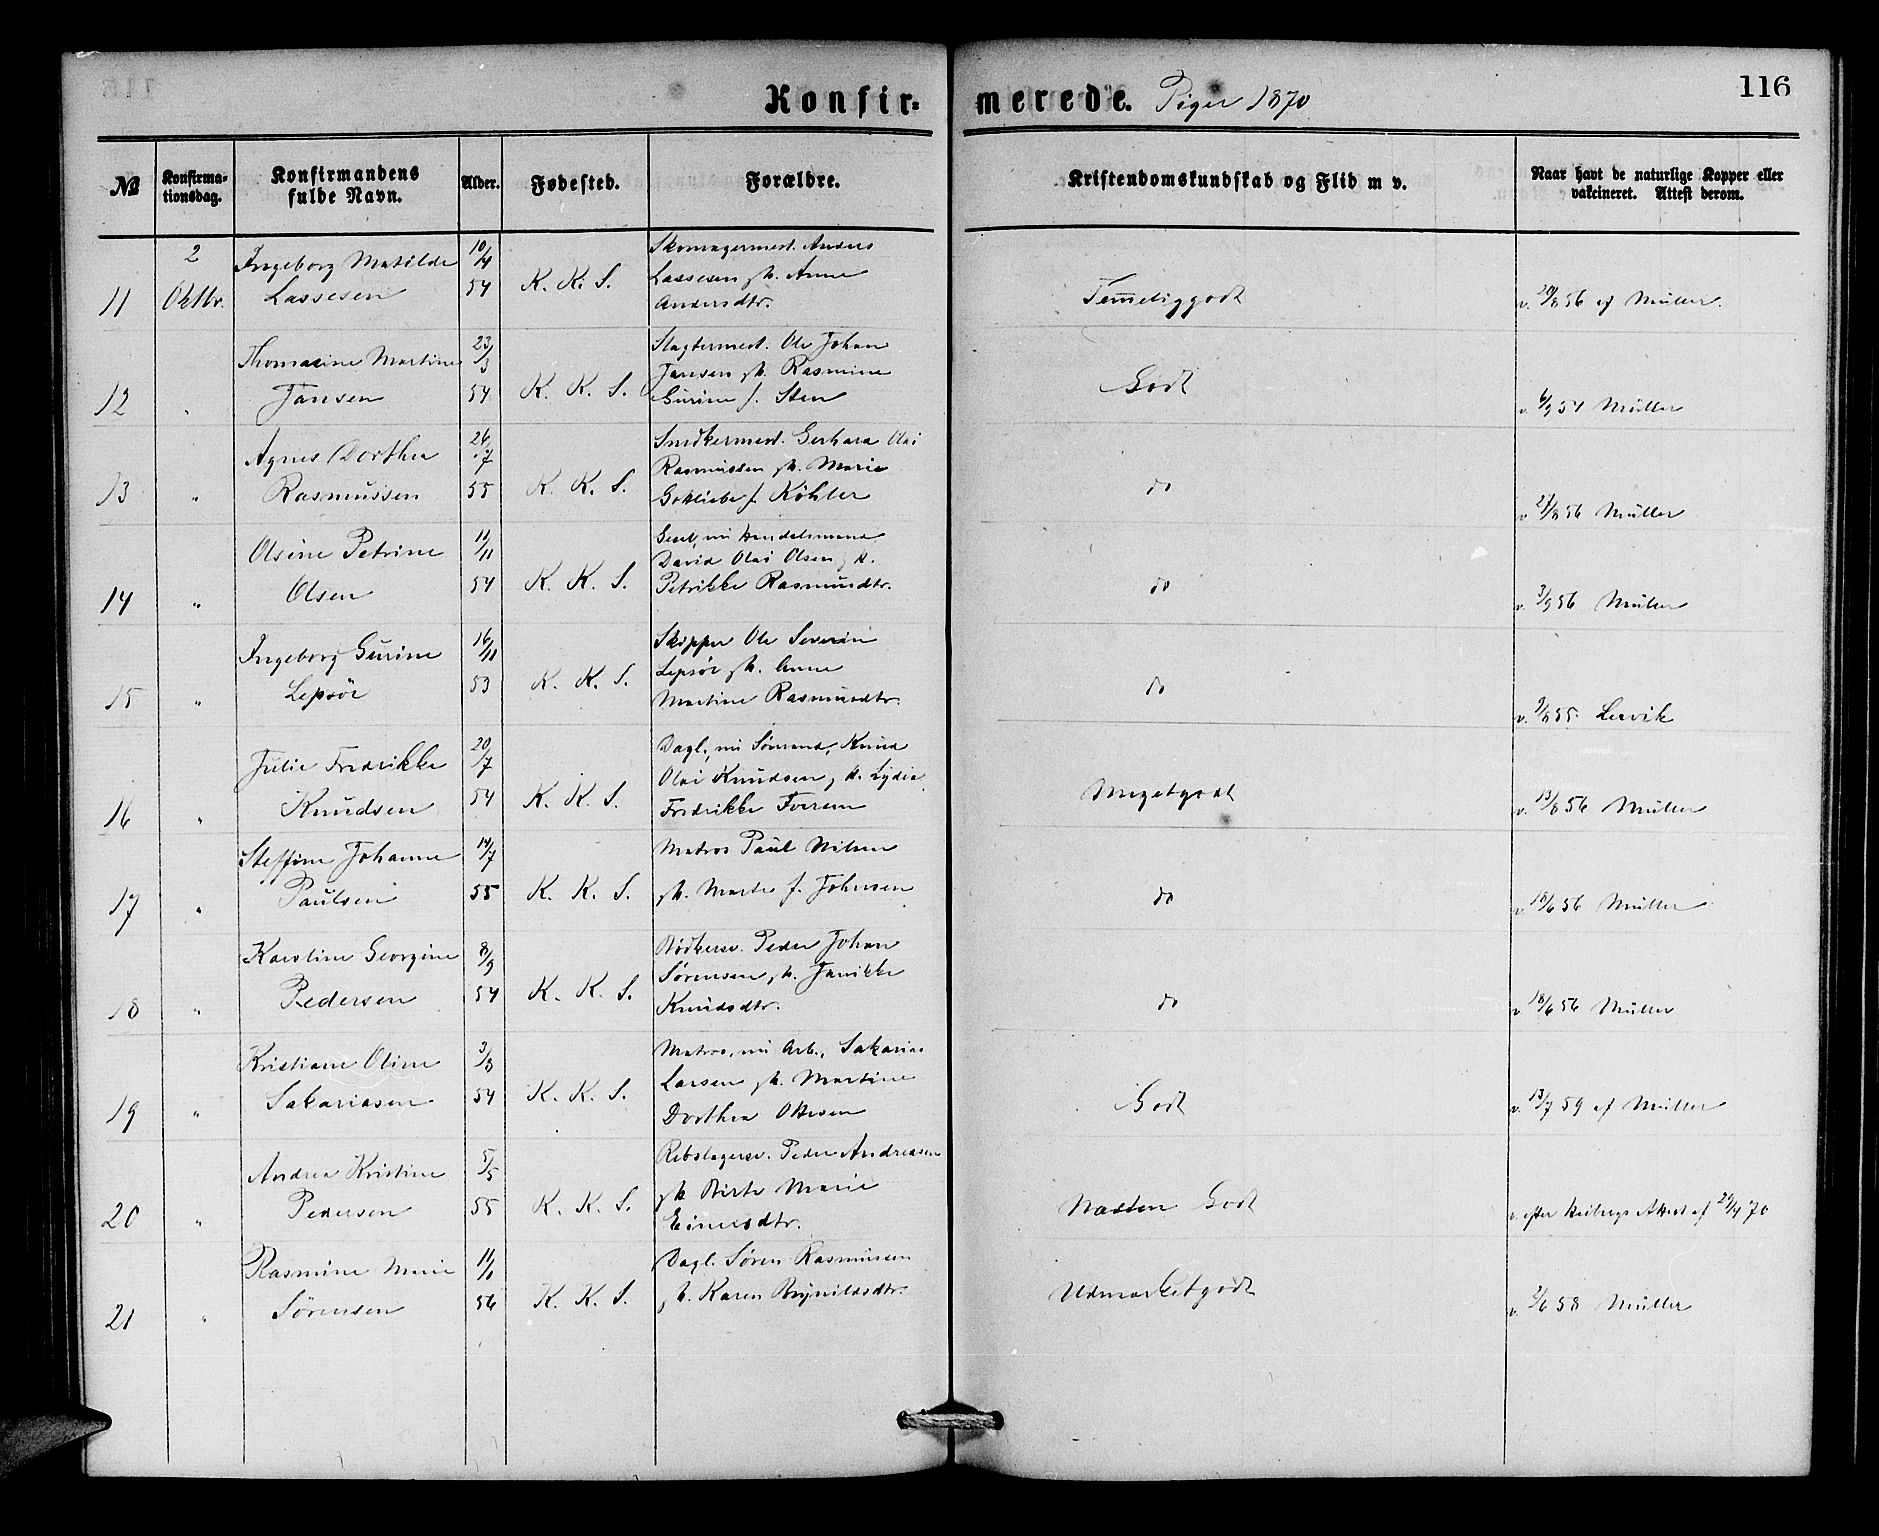 116
Konfir= merede. Piger 1870
№
Konfirma=
tionsdag.
Konfirmandens
fulde Navn.
Alder.
Fødested.
Forældre.
Kristendomskundskab og Flid m v.
Naar havt de naturlige Kopper eller
vakcineret. Attest derom.
11
2
Oktbr.
Ingeborg Matilde
Lassesen
10/4
54
K. K. S.
Skomagermest. Anders
Lassesen, h. Anne
Andersdtr.
Temeliggodt
v. 20/8 56 af Müller.
12
"
Thomasine Martine
Jansen
23/3
54
K. K. S.
Slagtermest. Ole Johan
Jansen, h. Rasmine
Gurine f. Sten
Godt
v. 6/9 54 Müller
13
"
Agnes Dorthea
Rasmussen
26/7
55
K. K. S.
Snedkermest. Gerhard Olai
Rasmussen, h. Marie
Gottliebe f. Köhler
do
v. 21/8 56 Müller
14
"
Olsine Petrine
Olsen
11/11
54
K. K. S.
nu Handelsmand
David Olai Olsen, h.
Petrikke Rasmusdtr.
do
v. 3/9 56 Müller
15
"
Ingeborg Gurine
Lepsöe
16/11
53
K. K. S.
Skipper Ole Severin
Lepsöe, h. Anne
Martine Rasmusdtr.
do
v. 9/8 55. Lervik
16
"
Julie Fredrikke
Knudsen
20/7
54
K. K. S.
Dagl., nu Sömand, Knud
Olai Knudsen, h. Lydia
Fredrikke
Megetgodt
v. 13/8 56 Müller
17
"
Steffine Johanne
Paulsen
14/7
55
K. K. S.
Matros Paul Nilsen
h. Marte f. Johnsen
do
v. 18/6 56 Müller
18
"
Karoline Georgine
Pedersen
8/9
54
K. K. S.
Bödkersv. Peder Johan
Sörensen, h. Janikke
Knudsdtr.
do
v. 18/6 56 Müller
19
"
Kristiane Oline
Sakariasen
3/3
54
K. K. S.
Matros, nu Arb., Sakarias
Larsen, h. Martine
Dorthea Ottesen
Godt
v. 13/7 59 af Müller
20
"
Andrea Kristine
Pedersen
5/5
55
K. K. S.
Rebslagersv. Peder Andreasen
h. Birte Marie
Einersdtr.
Næsten Godt
v. efter Heibergs Attest af 29/4 70
21
"
Rasmine Marie
Sörensen
56
K. K. S.
Dagl. Sören Rasmussen
h. Karen Brynildsdtr.
Udmærketgodt
v. 2/6 58 Müller